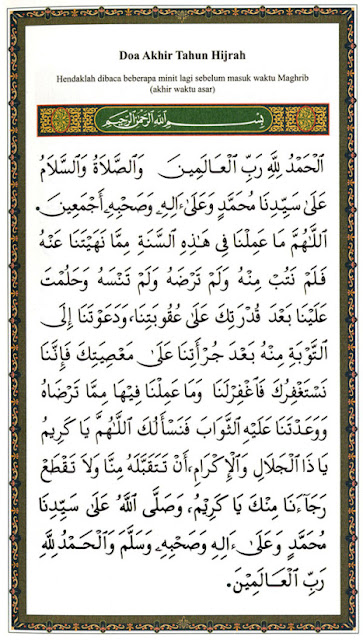 Doa Akhir Tahun Hijrah
Hendaklah dibaca beberapa minit lagi sebelum masuk waktu Maghrib
(akhir waktu asar)
بِسْمِ اللَّهِ الرَّحْمَنِ الرَّحِيمِ
اَلْحَمْدُ لِلَّهِ رَبِّ الْعَالَمِينَ وَالصَّلَاةُ وَالسَّلَامُ
عَلَى سَيِّدِنَا مُحَمَّدٍ وَعَلَى ءَالِهِ وَصَحْبِهِ أَجْمَعِينَ.
اَللَّهُمَّ مَا عَمِلْنَا فِي هَذِهِ السَّنَةِ مِمَّا نَهَيْتَنَا عَنْهُ
فَلَمْ نَتُبْ مِنْهُ وَلَمْ تَرْضَهُ وَلَمْ تَنْسَهُ وَحَلُمْتَ
عَلَيْنَا بَعْدَ قُدْرَتِكَ عَلَى عُقُوبَتِنَا، وَدَعَوْتَنَا إِلَى
التَّوْبَةِ مِنْهُ بَعْدَ جُرْأَتِنَا عَلَى مَعْصِيَتِكَ فَإِنَّنَا
نَسْتَغْفِرُكَ فَاغْفِرْلَنَا وَمَا عَمِلْنَا فِيهَا مِمَّا تَرْضَاهُ
وَوَعَدْتَنَا عَلَيْهِ الثَّوَابَ فَنَسْأَلُكَ اللَّهُمَّ يَا كَرِيمُ
يَا ذَا الْجَلَالِ وَالْإِكْرَامِ، أَنْ تَتَقَبَّلَهُ مِنَّا وَلَا تَقْطَعْ
رَجَآءَنَا مِنْكَ يَا كَرِيْمُ، وَصَلَّى اللَّهُ عَلَى سَيِّدِنَا
مُحَمَّدٍ وَعَلَى ءَالِهِ وَصَحْبِهِ وَسَلَّمَ وَالْحَمْدُ لِلَّهِ
رَبِّ الْعَالَمِيْنَ.